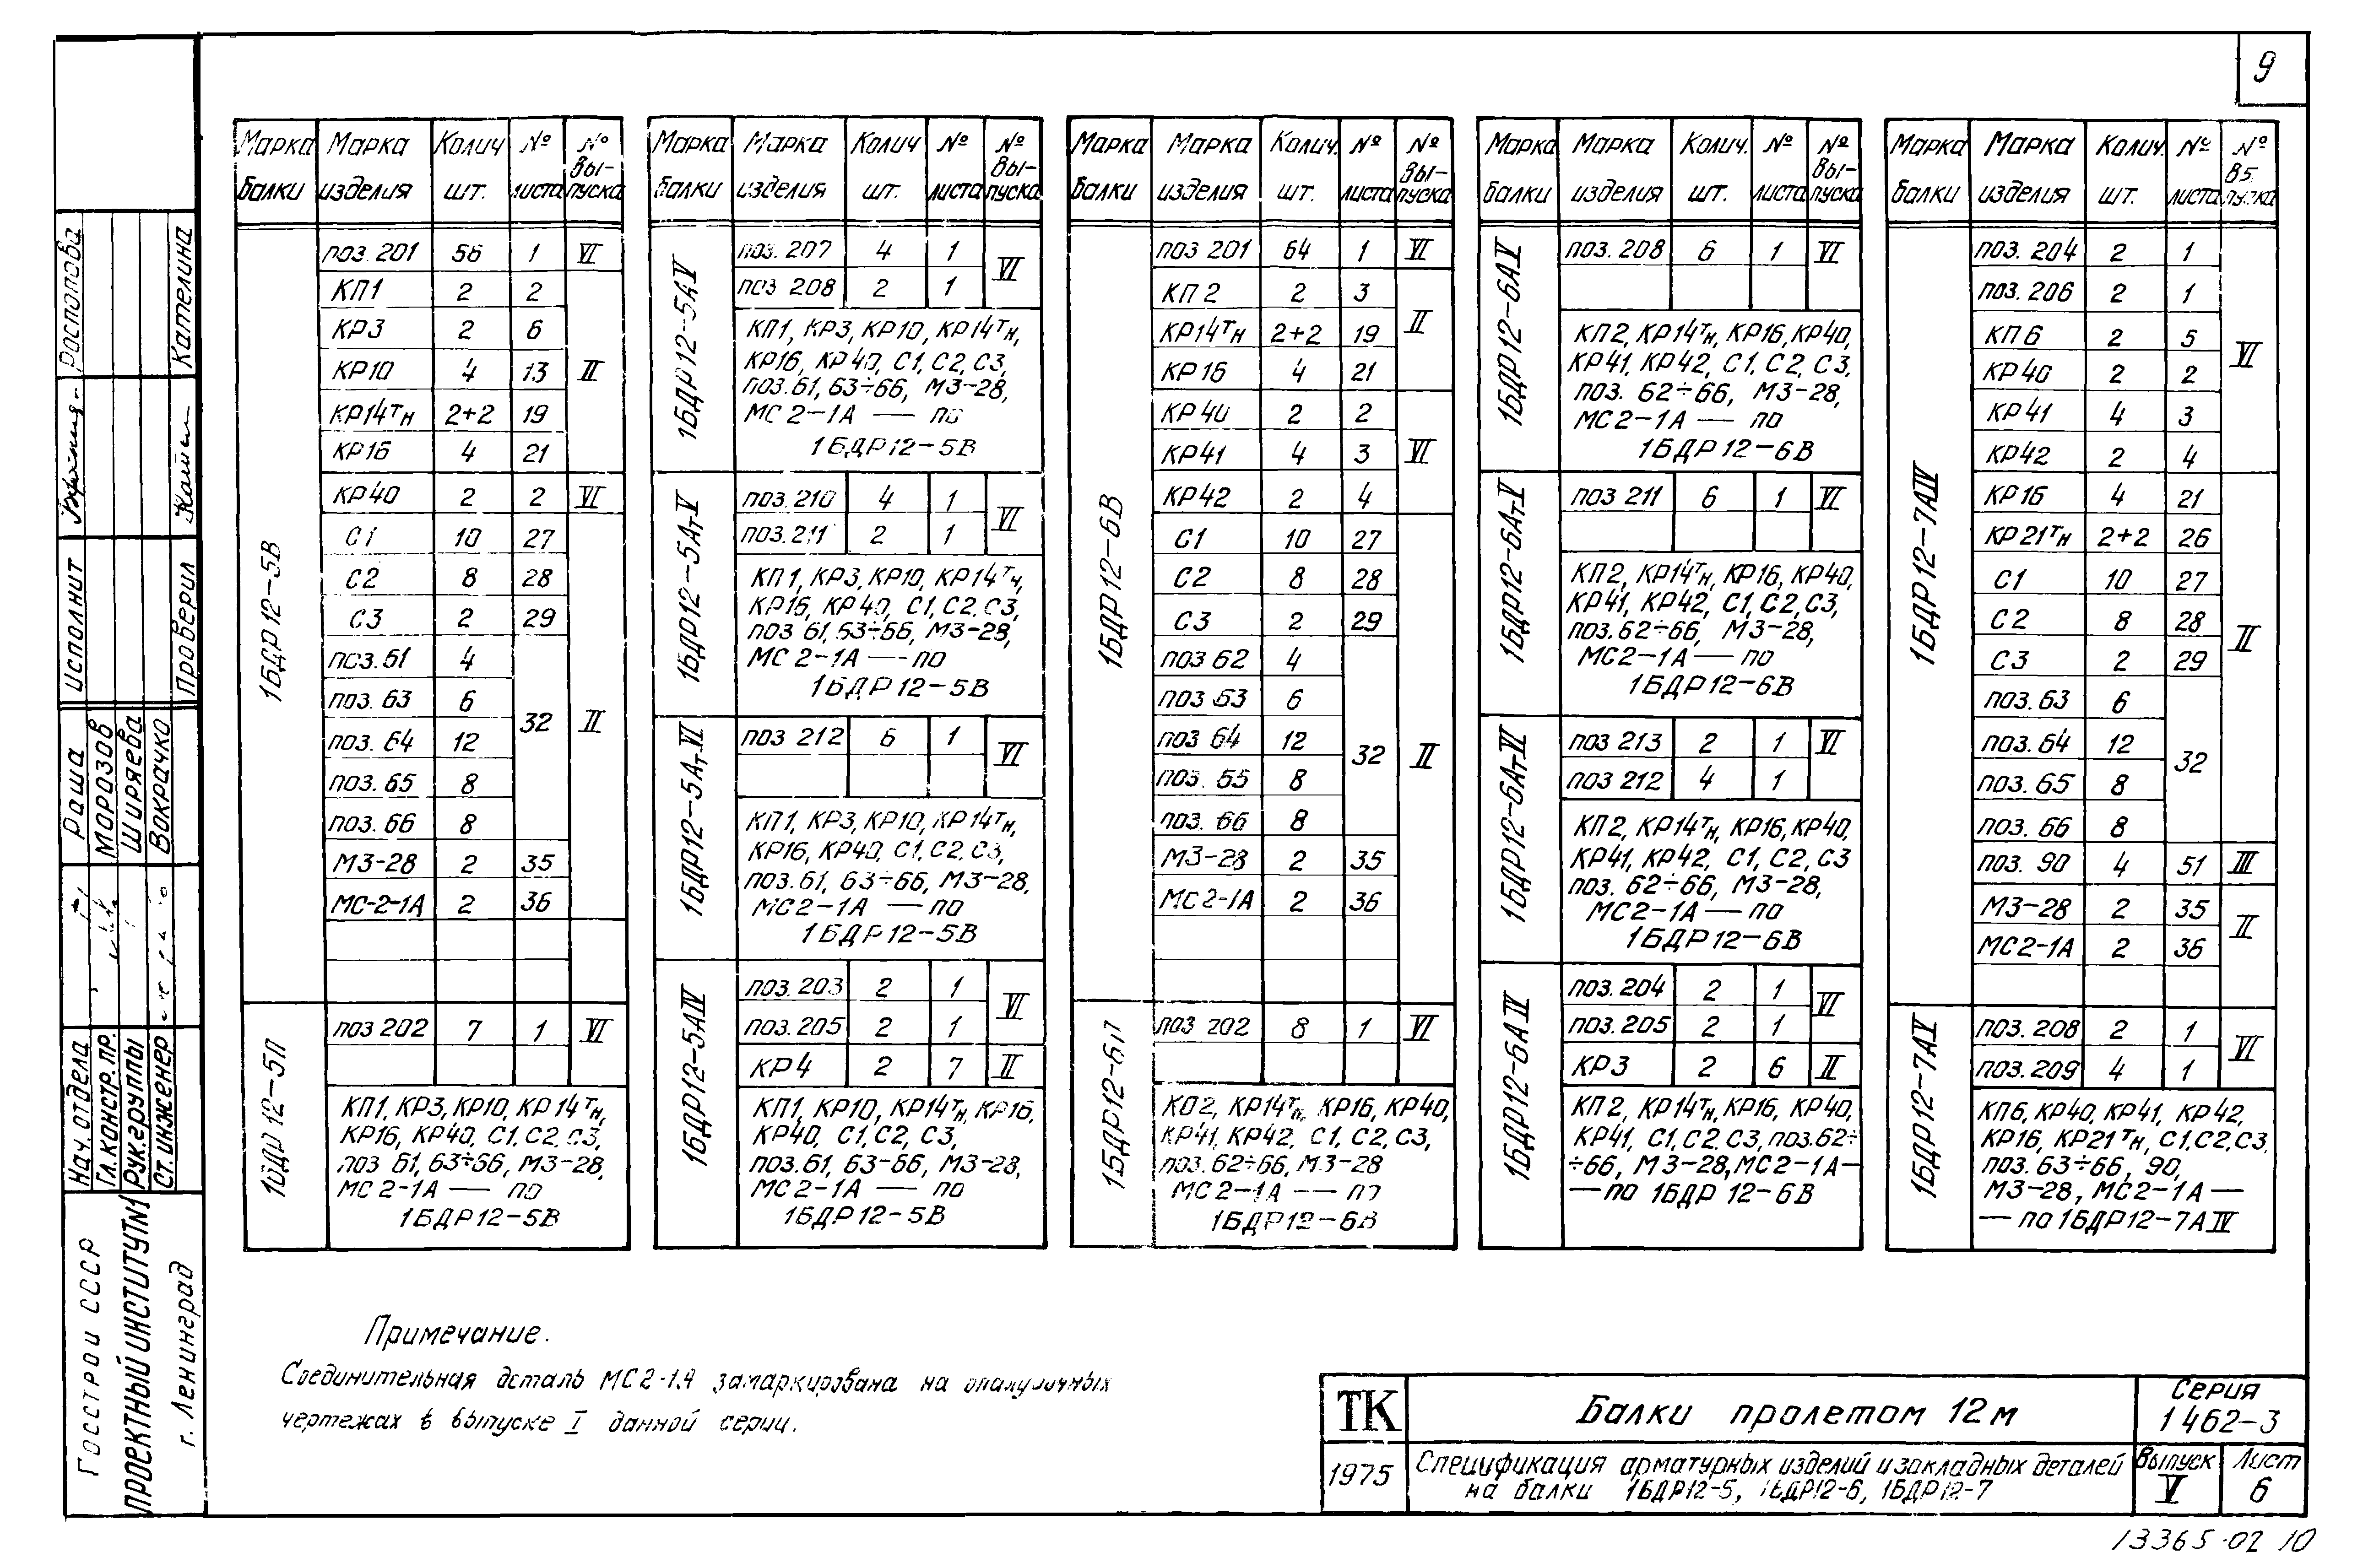 9
Марка балки | Марка изделия | Колич шт. | № листа | № выпуска
1БДР12-5В
поз.201 56 1 VI
КП1 2 2
КР3 2 6
КР10 4 13 II
КР14тн 2+2 19
КР16 4 21
КР40 2 2 VI
С1 10 27
С2 8 28
С3 2 29
поз.61 4
поз.63 6
32 II
поз.64 12
поз.65 8
поз.66 8
М3-28 2 35
МС-2-1А 2 36
1БДР12-5П
поз 202 7 1 VI
КП1, КР3, КР10, КР14тн,
КР16, КР40, С1, С2, С3,
поз 61, 63÷66, М3-28,
МС2-1А — по
1БДР12-5В
Марка балки | Марка изделия | Колич шт. | № листа | № выпуска
1БДР12-5АV
поз.207 4 1
VI
поз 208 2 1
КП1, КР3, КР10, КР14тн,
КР16, КР40, С1, С2, С3,
поз.61, 63÷66, М3-28,
МС2-1А — по
1БДР12-5В
1БДР12-5АтV
поз.210 4 1
VI
поз.211 2 1
КП1, КР3, КР10, КР14тн,
КР16, КР40, С1, С2, С3,
поз 61, 63÷66, М3-28,
МС2-1А — по
1БДР12-5В
1БДР12-5АтVI
поз 212 6 1 VI
КП1, КР3, КР10, КР14тн,
КР16, КР40, С1, С2, С3,
поз.61, 63÷66, М3-28,
МС2-1А — по
1БДР12-5В
1БДР12-5АIV
поз.203 2 1
VI
поз.205 2 1
КР4 2 7 II
КП1, КР10, КР14тн, КР16,
КР40, С1, С2, С3,
поз.61, 63-66, М3-28,
МС2-1А — по
1БДР12-5В
Марка балки | Марка изделия | Колич. шт. | № листа | № выпуска
1БДР12-6В
поз 201 64 1 VI
КП2 2 3
II
КР14тн 2+2 19
КР16 4 21
КР40 2 2
КР41 4 3 VI
КР42 2 4
С1 10 27
С2 8 28
С3 2 29
поз 62 4
поз 63 6
поз 64 12
32 II
поз. 65 8
поз. 66 8
М3-28 2 35
МС2-1А 2 36
1БДР12-6П
поз 202 8 1 VI
КП2, КР14тн, КР16, КР40,
КР41, КР42, С1, С2, С3,
поз.62÷66, М3-28
МС2-1А — по
1БДР12-6В
Марка балки | Марка изделия | Колич. шт. | № листа | № выпуска
1БДР12-6АV
поз.208 6 1 VI
КП2, КР14тн, КР16, КР40,
КР41, КР42, С1, С2, С3,
поз. 62÷66, М3-28,
МС2-1А — по
1БДР12-6В
1БДР12-6АтV
поз 211 6 1 VI
КП2, КР14тн, КР16, КР40,
КР41, КР42, С1, С2, С3,
поз.62÷66, М3-28,
МС2-1А — по
1БДР12-6В
1БДР12-6АтVI
поз 213 2 1 VI
поз 212 4 1
КП2, КР14тн, КР16, КР40,
КР41, КР42, С1, С2, С3
поз. 62÷66, М3-28,
МС2-1А — по
1БДР12-6В
1БДР12-6АIV
поз.204 2 1
VI
поз.205 2 1
КР3 2 6 II
КП2, КР14тн, КР16, КР40,
КР41, С1, С2, С3, поз.62÷
÷66, М3-28, МС2-1А—
—по 1БДР 12-6В
Марка балки | Марка изделия | Колич. шт. | № листа | №
1БДР12-7АIV
поз.204 2 1
поз.206 2 1
КП6 2 5
VI
КР40 2 2
КР41 4 3
КР42 2 4
КР16 4 21
КР21тн 2+2 26
С1 10 27
С2 8 28
II
С3 2 29
поз.63 6
поз.64 12
32
поз.65 8
поз.66 8
поз. 90 4 51 III
М3-28 2 35
II
МС2-1А 2 36
1БДР12-7АV
поз.208 2 1
VI
поз.209 4 1
КП6, КР40, КР41, КР42,
КР16, КР21тн, С1, С2, С3,
поз.63÷66, 90,
М3-28, МС2-1А —
— по 1БДР12-7АIV
Примечание.
Соединительная деталь МС2-1А замаркирована на опалубочных
чертежах в выпуске I данной серии.
ТК
Балки пролетом 12м
Серия
1462-3
1975
Спецификация арматурных изделий и закладных деталей
на балки 1БДР12-5, 1БДР12-6, 1БДР12-7
Выпуск
V
Лист
6
13365-02 10
Распопова
Кателина
исполнит
Проверил
Раша
Морозов
Ширяева
Вокрачко
Нач.отдела
Гл.констр.пр.
Рук.группы
Ст.инженер
Госстрой СССР
ПРОЕКТНЫЙ ИНСТИТУТ№1
г. Ленинград